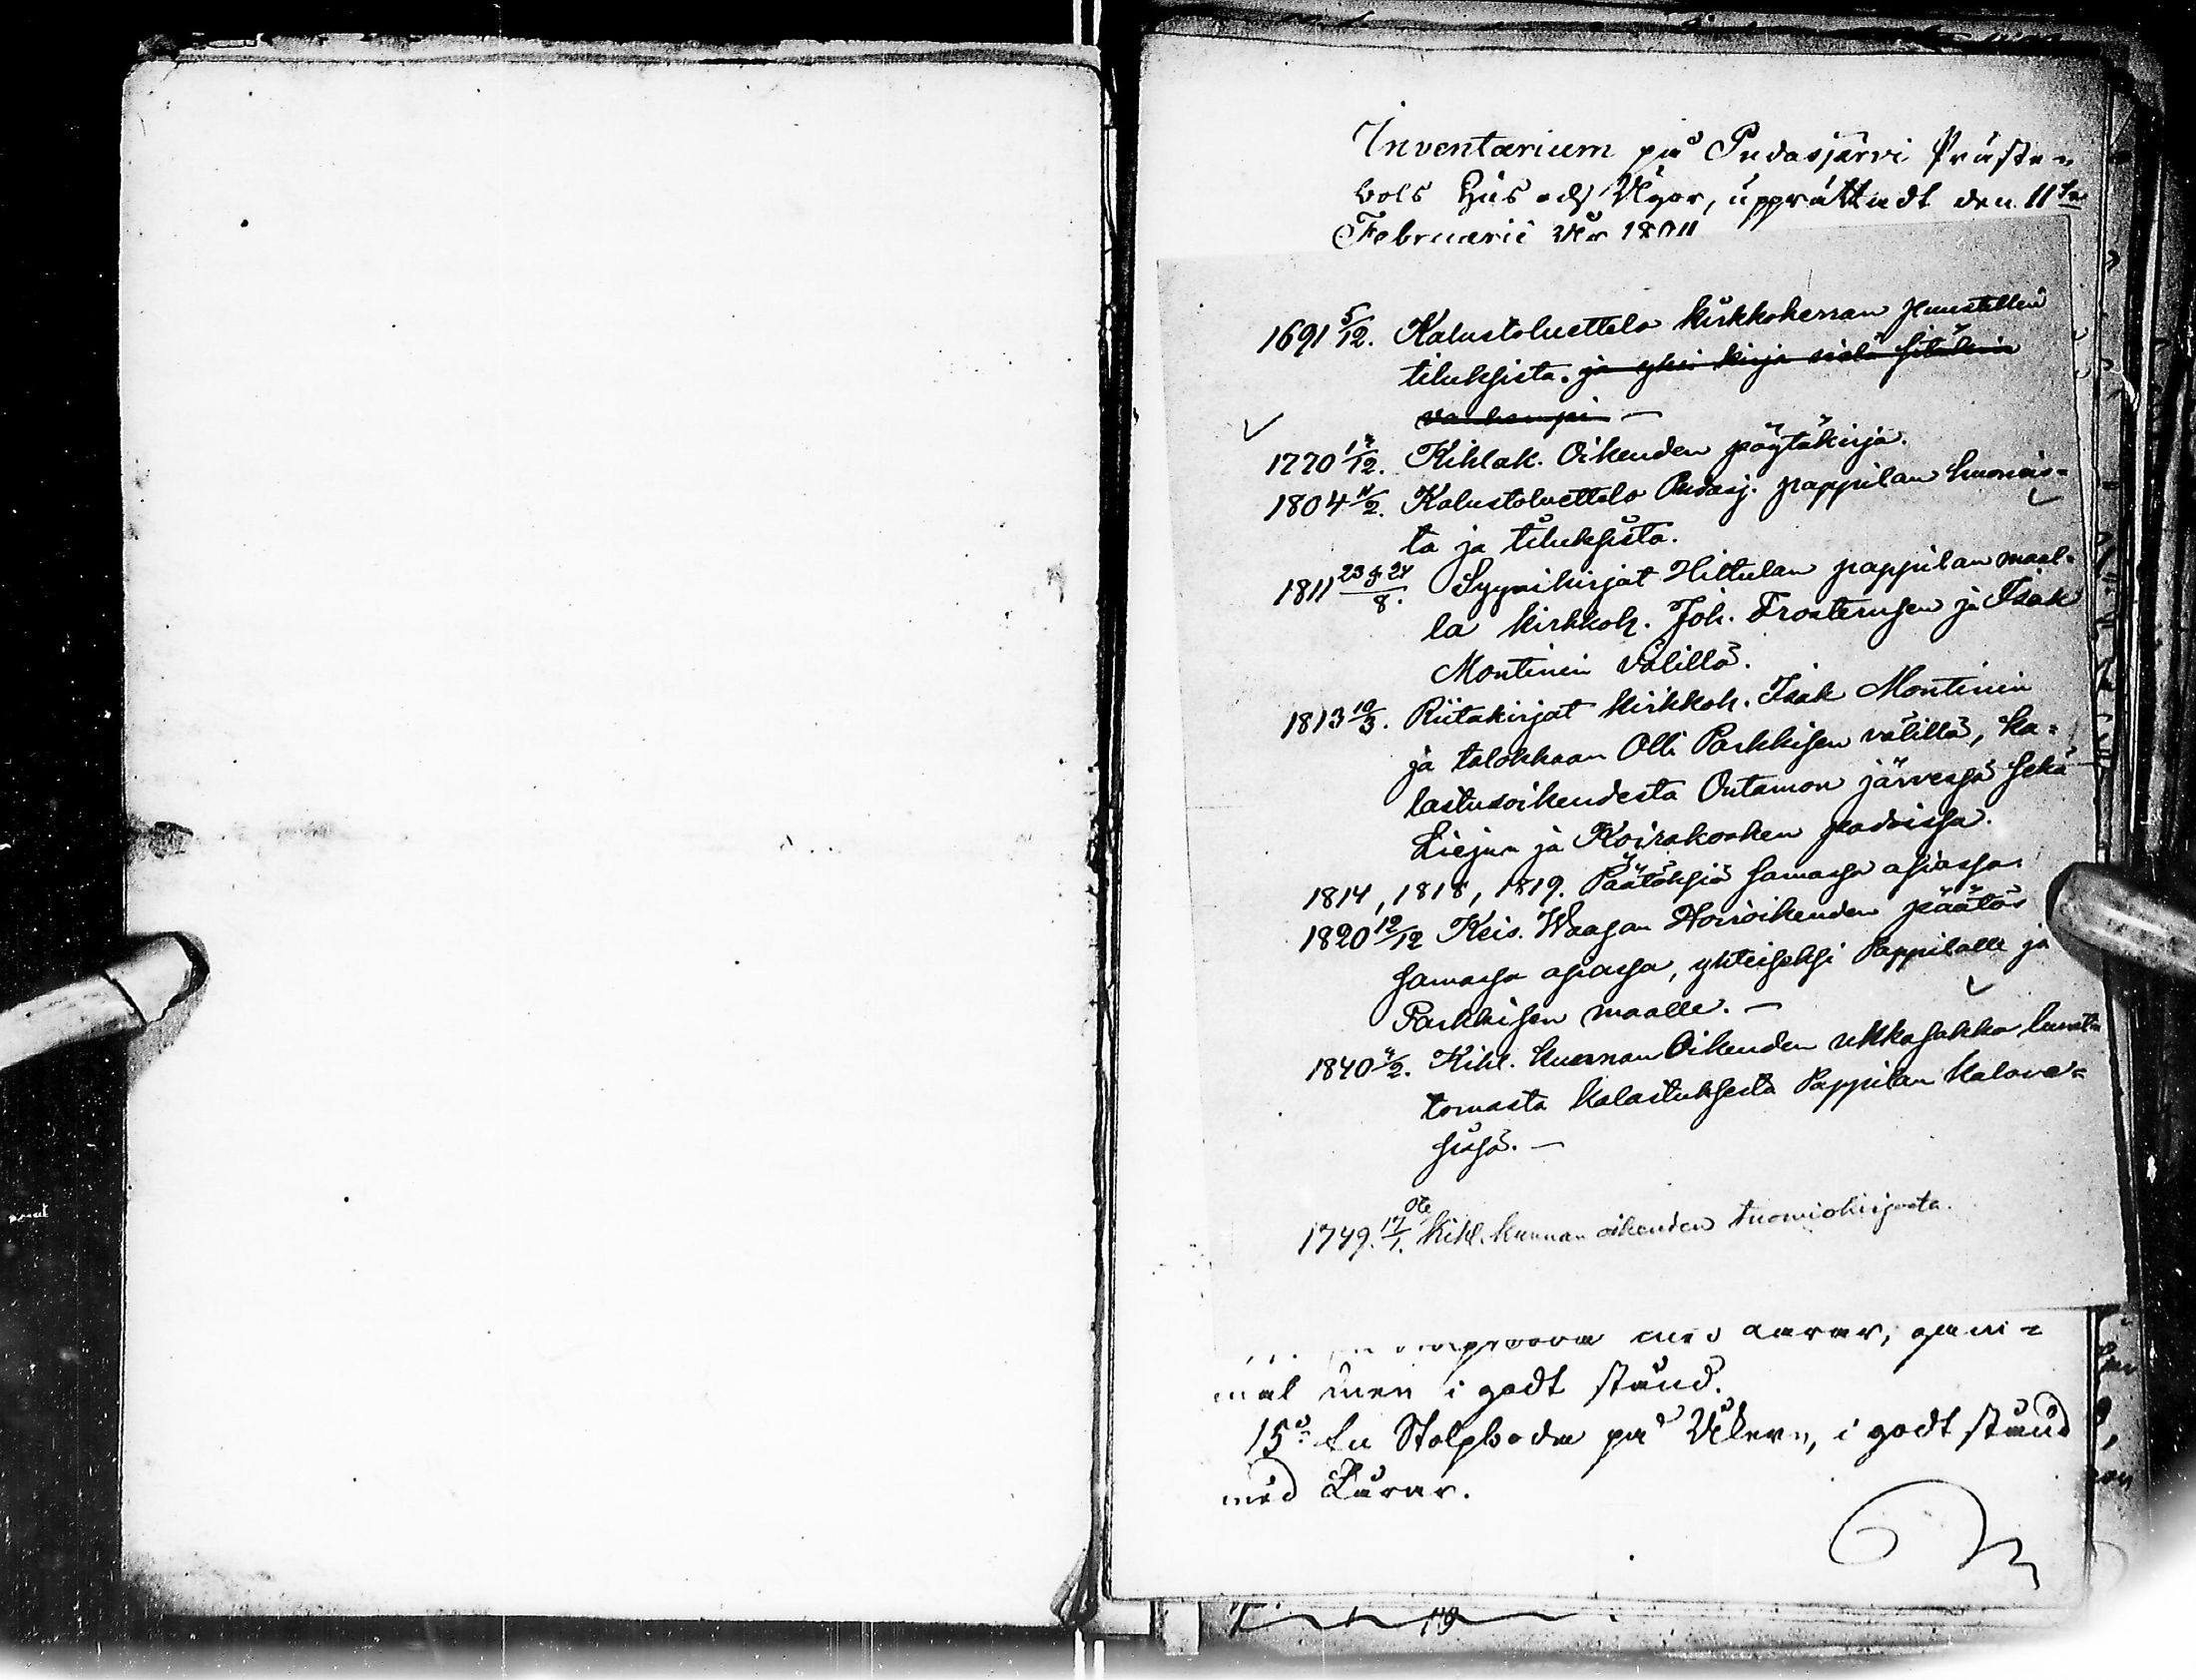 Inventarium på Pudasjärvi Präste-
bols Hus och Ägor, upprättadt den 11te
Februarii År 1804
1691 5/12. Kalustoluettelo kirkkoherran puustellin
tiluksista. ja yksi kirja vielä sitäkin
vanhempi —
1770 1/12. Kihlak. Oikeuden pöytäkirja.
1804 11/2. Kalustoluettelo Pudasj. pappilan huoneis-
ta ja tiluksista.
1811 23 & 24/8. Syynikirjat Hiltulan pappilan maal-
la kirkkoh. Joh. Frosterusen ja Isak
Montinin välillä.
1813 10/3. Riitakirjat kirkkoh. Isak Montinin
ja talokkaan Olli Parkkisen välillä, ka-
lastusoikeudesta Ontamon järvessä sekä
Liejun ja Koirakosken padoissa.
1814, 1818, 1819. Päätöksiä samassa asiassa.
1820 12/12 Keis. Waasan Hovioikeuden päätös
samassa asiassa, yhteiseksi Pappilalle ja
Parkkisen maalle. —
1840 4/2. Kihl. kunnan Oikeuden uhkasakko luvat-
tomasta kalastuksesta Pappilan kalave-
sissä. —
1749. 17/1. Ote Kihl. kunnan oikeuden tuomiokirjasta.
mal men i godt stånd.
15:o En Stolpboda på Åkern, i godt stånd
med Lårar.